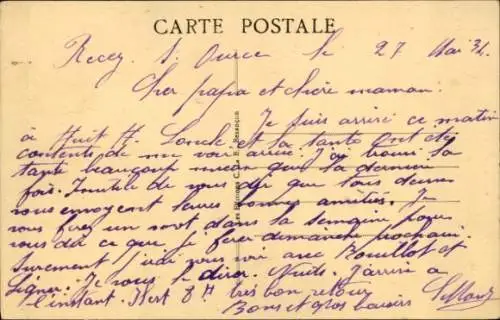 CARTE POSTALE
Recey s. Ource le 27 Mai 31.
Cher papa et chère maman.
Je suis arrivé ce matin
à Huit H. L'oncle et la tante ont été
contents de me voir arrivé. J'ai trouvé la
tante beaucoup mieux que la dernière
fois. Inutile de vous dir que tous deux
vous envoyent leurs bonnes amitiés. Je
vous ferez un mot dans la semaine pour
vous dir ce que je ferez dimanche prochain.
Surement j'irai vous voir avec Bouillot et
Je vous le direz. Nuits. J'arrive à
l'instant. Il est 8H très bon retour
Bons et gros baisers